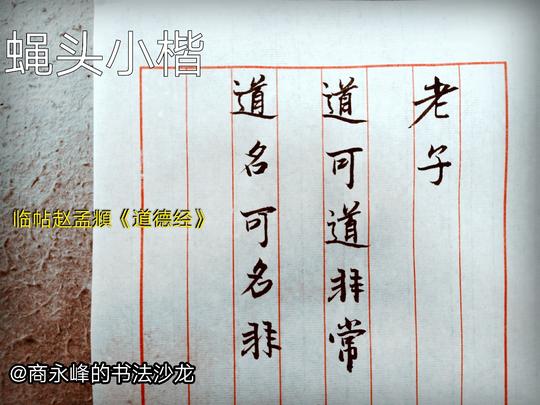 蝇头小楷
老子
道可道非常
道名可名非
临帖赵孟頫《道德经》
@商永峰的书法沙龙